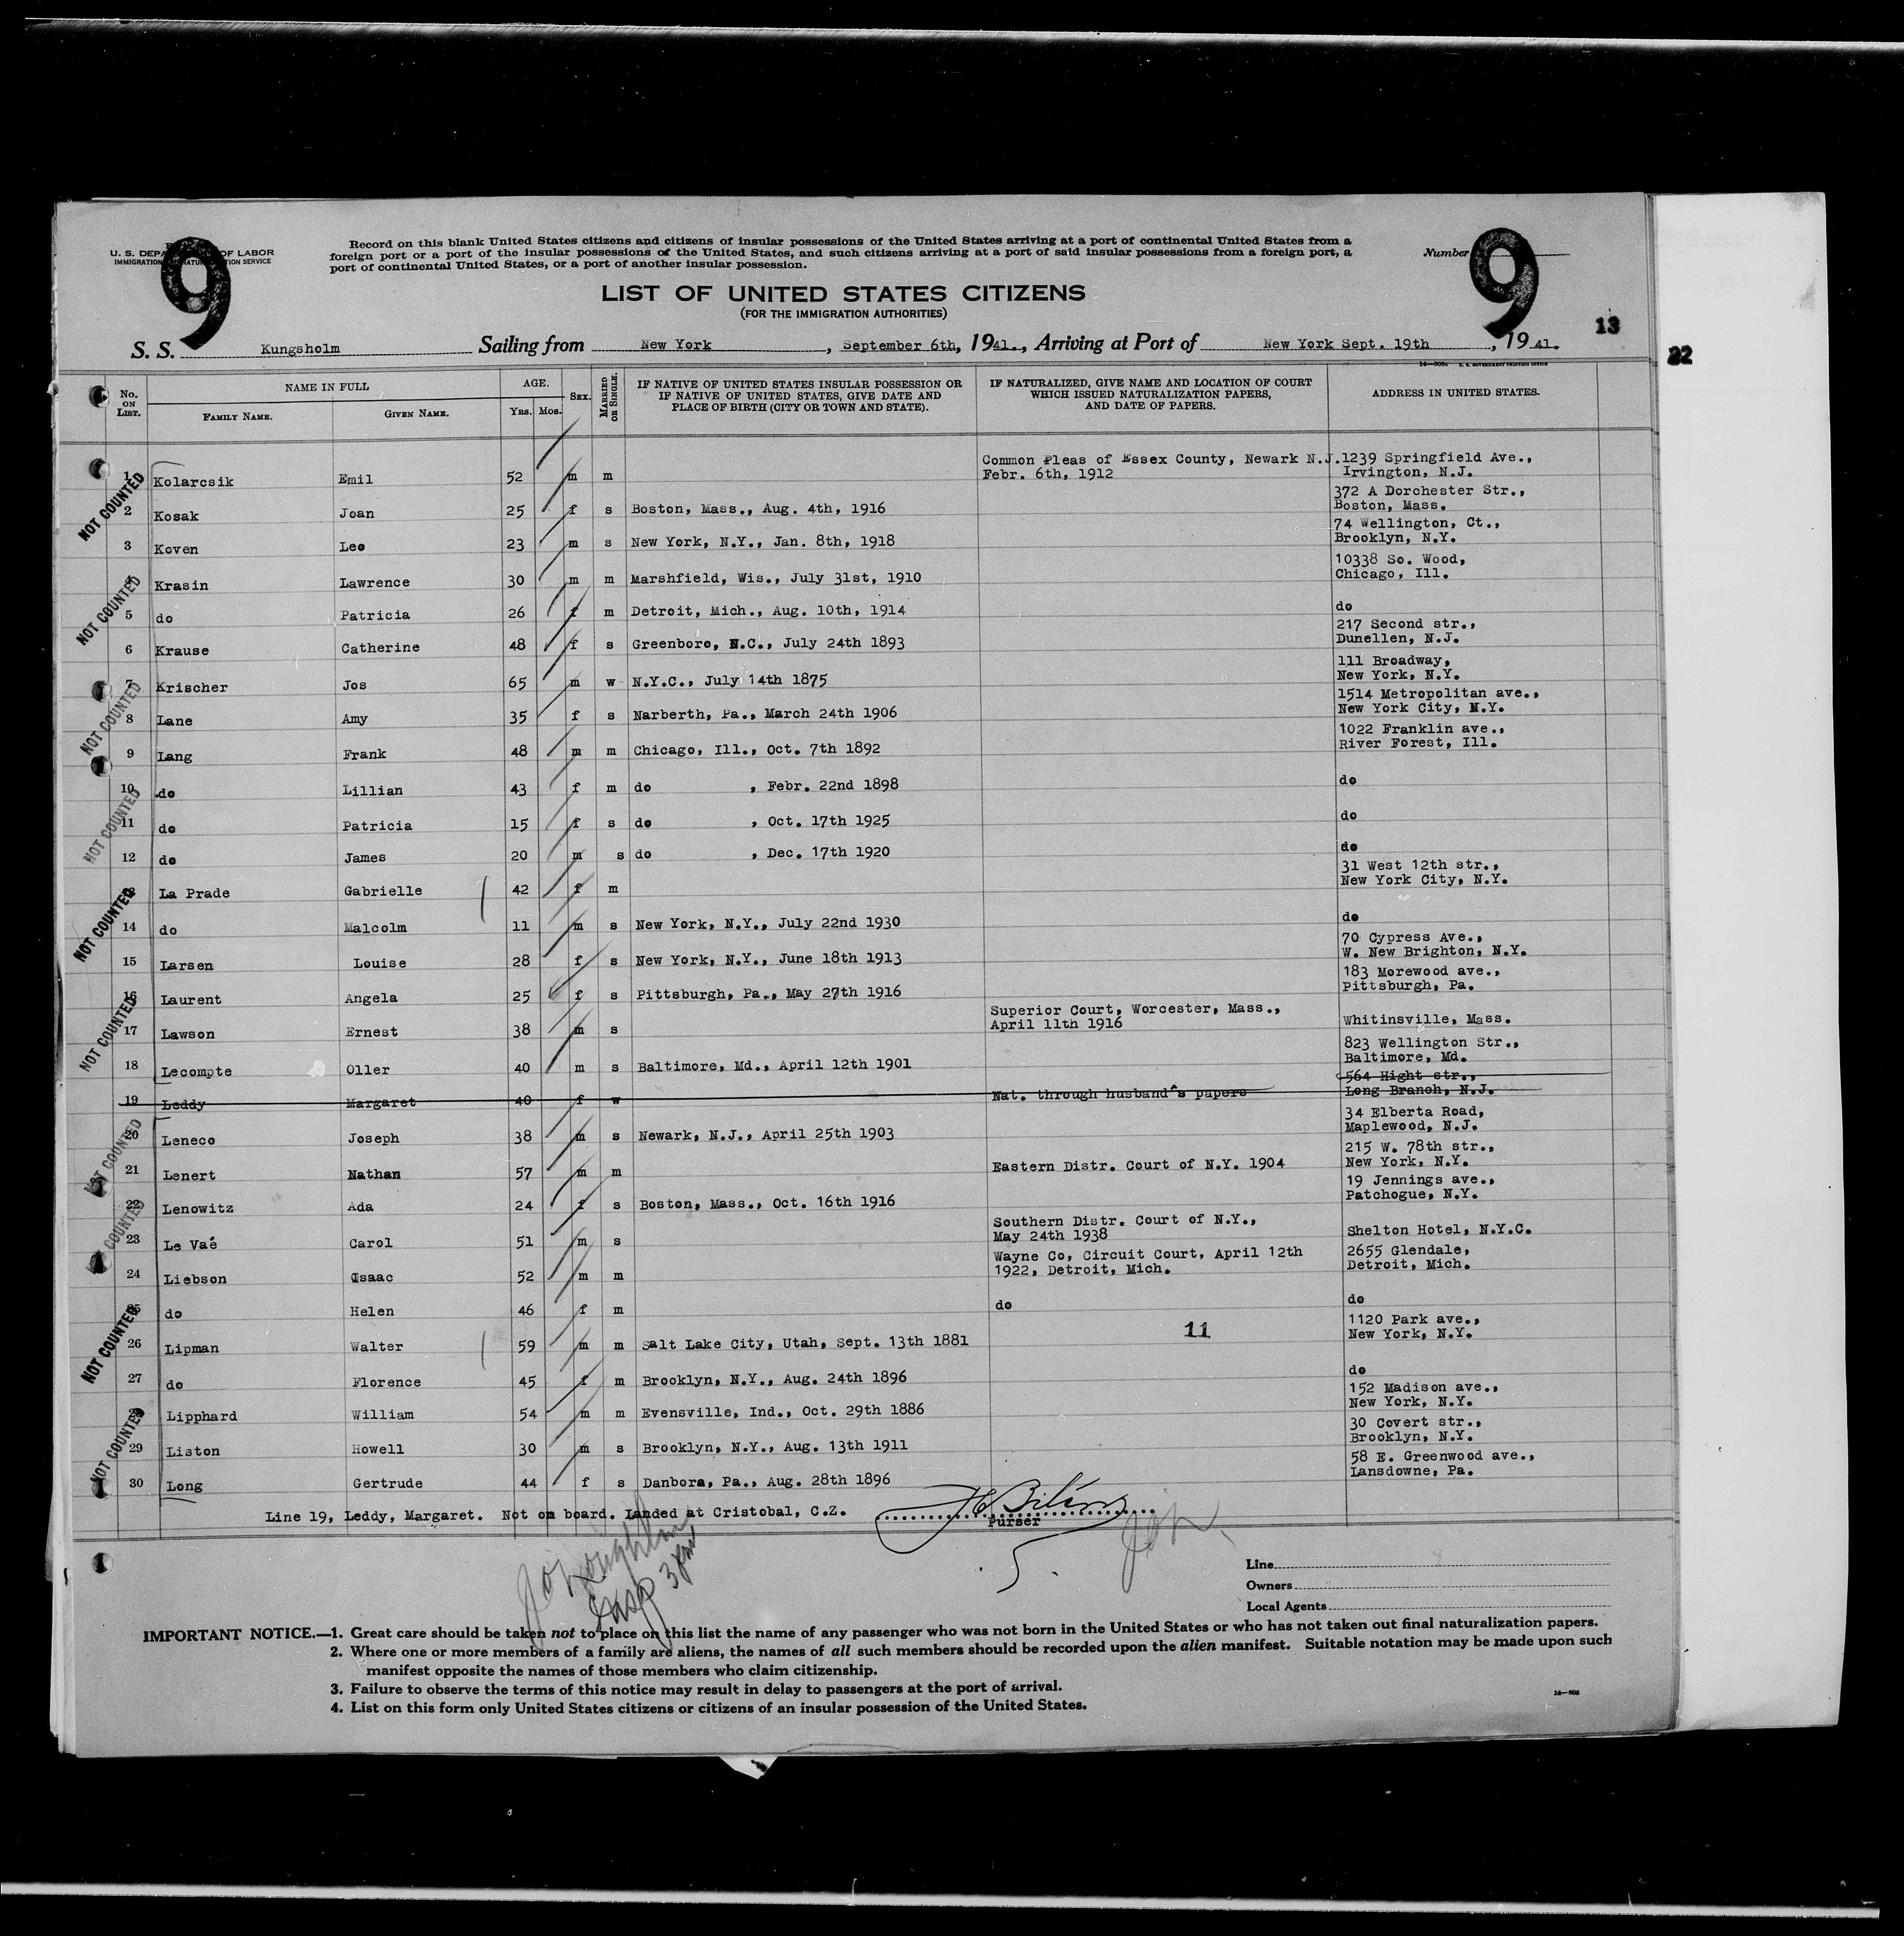 U. S. DEPA OF LABOR
IMMIGRATION NATURALIZATION SERVICE
9
Record on this blank United States citizens and citizens of insular possessions of the United States arriving at a port of continental United States from a
foreign port or a port of the insular possessions of the United States, and such citizens arriving at a port of said insular possessions from a foreign port, a
port of continental United States, or a port of another insular possession.
Number
9
LIST OF UNITED STATES CITIZENS
(FOR THE IMMIGRATION AUTHORITIES)
13
22
S. S. Kungsholm Sailing from New York, September 6th, 1941., Arriving at Port of New York Sept. 19th, 1941.
No. ON LIST. NAME IN FULL FAMILY NAME. GIVEN NAME. AGE. YRS. MOS. SEX. MARRIED OR SINGLE. IF NATIVE OF UNITED STATES INSULAR POSSESSION OR IF NATIVE OF UNITED STATES, GIVE DATE AND PLACE OF BIRTH (CITY OR TOWN AND STATE). IF NATURALIZED, GIVE NAME AND LOCATION OF COURT WHICH ISSUED NATURALIZATION PAPERS, AND DATE OF PAPERS. ADDRESS IN UNITED STATES.
1 Kolarcsik Emil 52 m m Common Pleas of Essex County, Newark N.J. Febr. 6th, 1912 1239 Springfield Ave., Irvington, N.J.
2 Kosak Joan 25 f s Boston, Mass., Aug. 4th, 1916 372 A Dorchester Str., Boston, Mass.
3 Koven Leo 23 m s New York, N.Y., Jan. 8th, 1918 74 Wellington, Ct., Brooklyn, N.Y.
4 Krasin Lawrence 30 m m Marshfield, Wis., July 31st, 1910 10338 So. Wood, Chicago, Ill.
5 do Patricia 26 f m Detroit, Mich., Aug. 10th, 1914 do
6 Krause Catherine 48 f s Greenboro, N.C., July 24th 1893 217 Second str., Dunellen, N.J.
7 Krischer Jos 65 m w N.Y.C., July 14th 1875 111 Broadway, New York, N.Y.
8 Lane Amy 35 f s Narberth, Pa., March 24th 1906 1514 Metropolitan ave., New York City, N.Y.
9 Lang Frank 48 m m Chicago, Ill., Oct. 7th 1892 1022 Franklin ave., River Forest, Ill.
10 do Lillian 43 f m do , Febr. 22nd 1898 do
11 do Patricia 15 f s do , Oct. 17th 1925 do
12 do James 20 m s do , Dec. 17th 1920 do
13 La Prade Gabrielle 42 f m 31 West 12th str., New York City, N.Y.
14 do Malcolm 11 m s New York, N.Y., July 22nd 1930 do
15 Larsen Louise 28 f s New York, N.Y., June 18th 1913 70 Cypress Ave., W. New Brighton, N.Y.
16 Laurent Angela 25 f s Pittsburgh, Pa., May 27th 1916 183 Morewood ave., Pittsburgh, Pa.
17 Lawson Ernest 38 m s Superior Court, Worcester, Mass., April 11th 1916 Whitinsville, Mass.
18 Lecompte Oller 40 m s Baltimore, Md., April 12th 1901 823 Wellington Str., Baltimore, Md.
19 Leddy Margaret 40 f w Nat. through husband's papers 564 Hight str., Long Branch, N.J.
20 Leneco Joseph 38 m s Newark, N.J., April 25th 1903 34 Elberta Road, Maplewood, N.J.
21 Lenert Nathan 57 m m Eastern Distr. Court of N.Y. 1904 215 W. 78th str., New York, N.Y.
22 Lenowitz Ada 24 f s Boston, Mass., Oct. 16th 1916 19 Jennings ave., Patchogue, N.Y.
23 Le Vaé Carol 51 m s Southern Distr. Court of N.Y., May 24th 1938 Shelton Hotel, N.Y.C.
24 Liebson Isaac 52 m m Wayne Co, Circuit Court, April 12th 1922, Detroit, Mich. 2655 Glendale, Detroit, Mich.
25 do Helen 46 f m do do
26 Lipman Walter 59 m m Salt Lake City, Utah, Sept. 13th 1881 11 1120 Park ave., New York, N.Y.
27 do Florence 45 f m Brooklyn, N.Y., Aug. 24th 1896 do
28 Lipphard William 54 m m Evensville, Ind., Oct. 29th 1886 152 Madison ave., New York, N.Y.
29 Liston Howell 30 m s Brooklyn, N.Y., Aug. 13th 1911 30 Covert str., Brooklyn, N.Y.
30 Long Gertrude 44 f s Danbora, Pa., Aug. 28th 1896 58 E. Greenwood ave., Lansdowne, Pa.
NOT COUNTED
NOT COUNTED
NOT COUNTED
NOT COUNTED
NOT COUNTED
NOT COUNTED
NOT COUNTED
COUNTED
NOT COUNTED
NOT COUNTED
Line 19, Leddy, Margaret. Not on board. Landed at Cristobal, C.Z.
Purser
5
Line
Owners
Local Agents
IMPORTANT NOTICE.—1. Great care should be taken not to place on this list the name of any passenger who was not born in the United States or who has not taken out final naturalization papers.
2. Where one or more members of a family are aliens, the names of all such members should be recorded upon the alien manifest. Suitable notation may be made upon such
manifest opposite the names of those members who claim citizenship.
3. Failure to observe the terms of this notice may result in delay to passengers at the port of arrival.
4. List on this form only United States citizens or citizens of an insular possession of the United States.